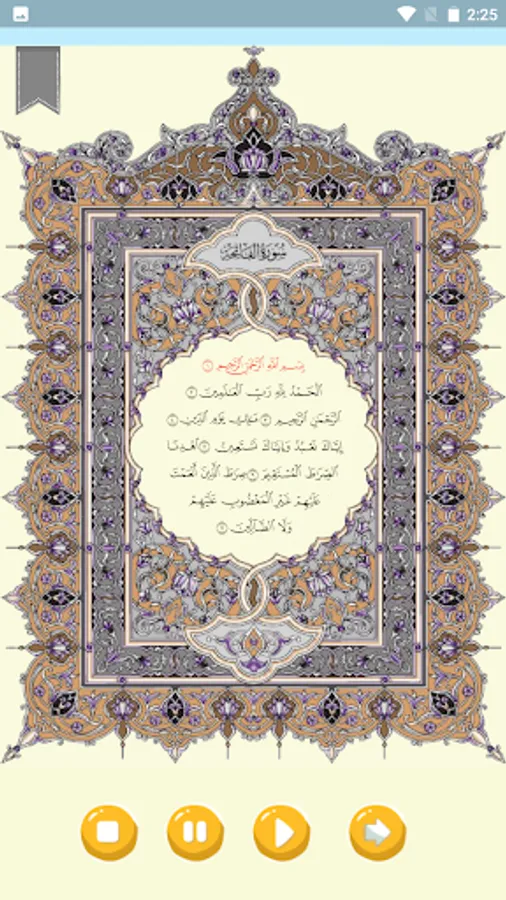 2:25
سُورَةُ الفَاتِحَةِ
بِسْمِ اللَّهِ الرَّحْمَٰنِ الرَّحِيمِ ١
الْحَمْدُ لِلَّهِ رَبِّ الْعَالَمِينَ ٢
الرَّحْمَٰنِ الرَّحِيمِ ٣ مَالِكِ يَوْمِ الدِّينِ ٤
إِيَّاكَ نَعْبُدُ وَإِيَّاكَ نَسْتَعِينُ ٥ اهْدِنَا
الصِّرَاطَ الْمُسْتَقِيمَ ٦ صِرَاطَ الَّذِينَ أَنْعَمْتَ
عَلَيْهِمْ غَيْرِ الْمَغْضُوبِ عَلَيْهِمْ
وَلَا الضَّالِّينَ ٧